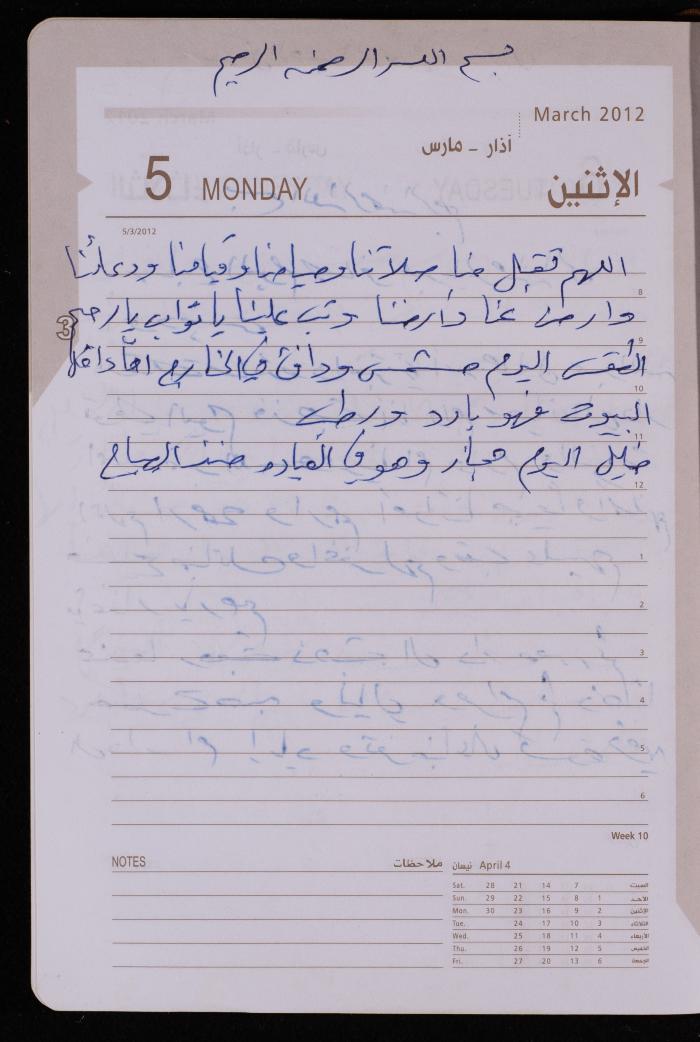 بسم الله الرحمن الرحيم
March 2012
آذار - مارس
5 MONDAY الإثنين
5/3/2012
اللهم تقبل منا صلاتنا وصيامنا وقيامنا ودعائنا
8
وارض عنا وأرضنا وتب علينا يا تواب يا رحيم
9
الطقس اليوم مشمس ودافئ في الخارج أما داخل
10
البيوت فهو بارد ورطب
11
خليل اليوم مجاز وهو في العياده منذ الصباح
12
1
2
3
4
5
6
Week 10
NOTES ملاحظات
April 4 نيسان
Sat. 28 21 14 7 السبت
Sun. 29 22 15 8 1 الأحد
Mon. 30 23 16 9 2 الإثنين
Tue. 24 17 10 3 الثلاثاء
Wed. 25 18 11 4 الأربعاء
Thu. 26 19 12 5 الخميس
Fri. 27 20 13 6 الجمعة